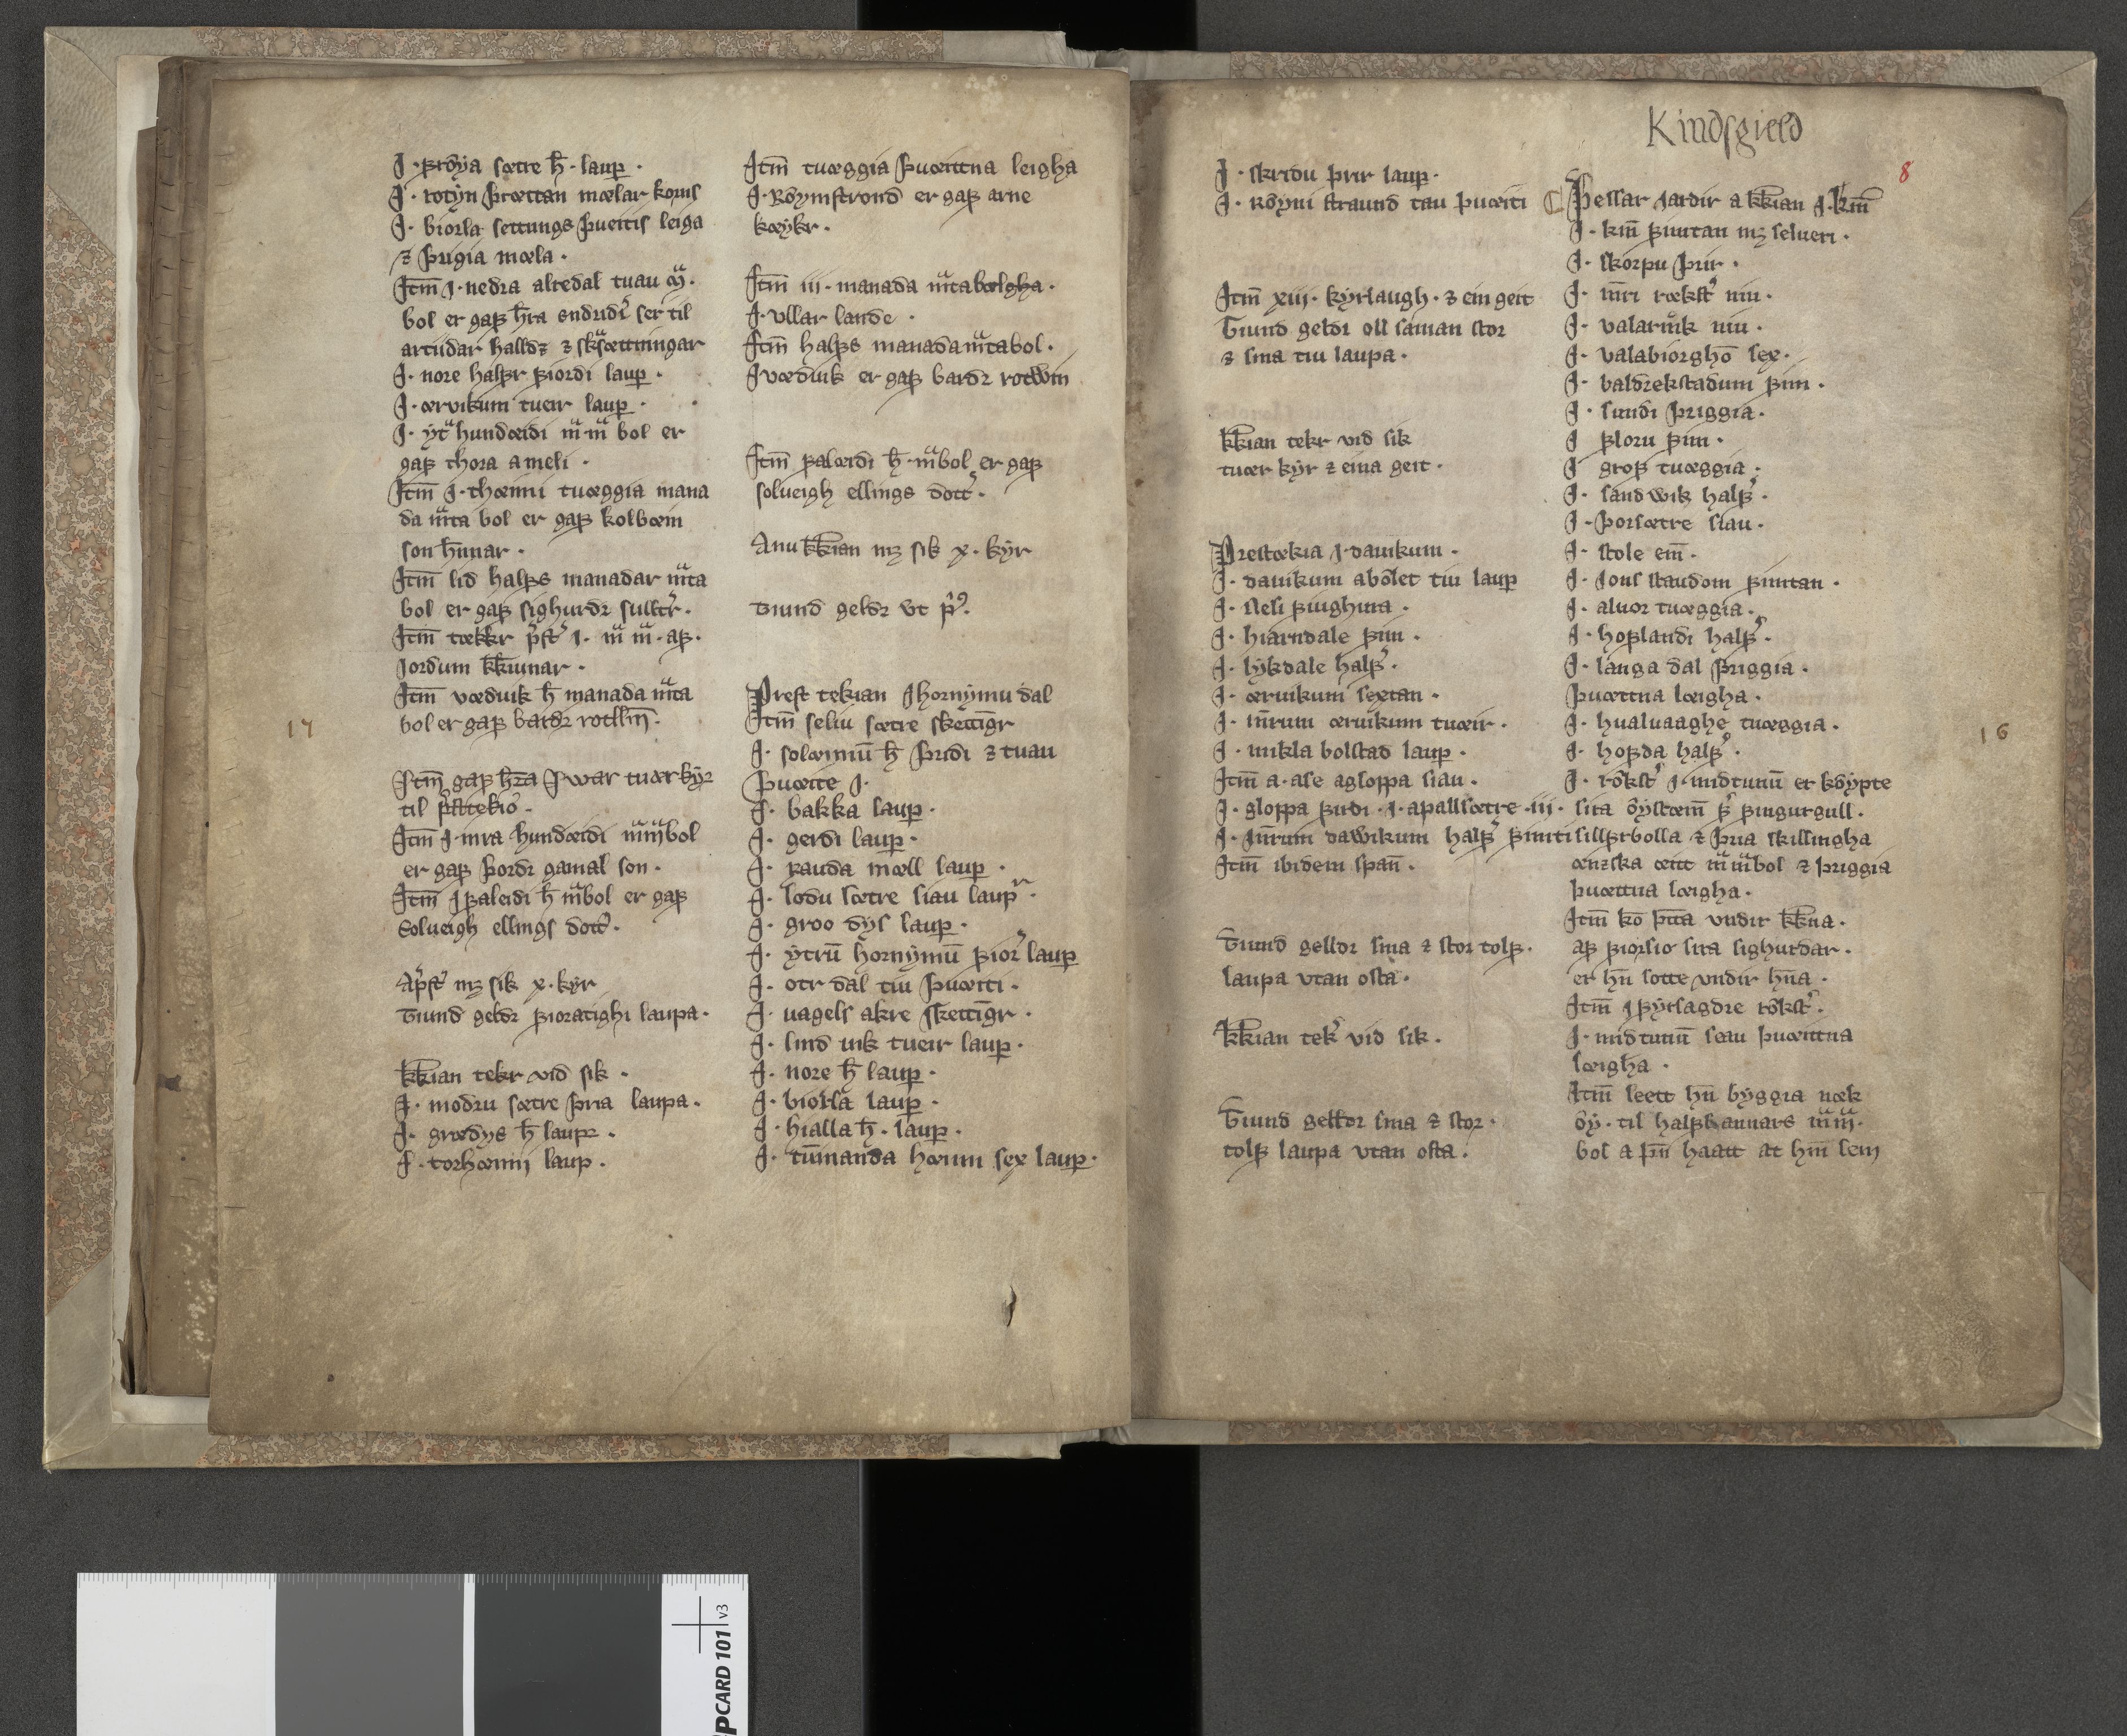 J · frøya sætre h̄ · laup ·
J · rotyn þrættan mælar korns
J · biorla settungs þueitis leiga
⁊ þrigia mæla ·
Jtm̄ J · nedra alredal tuau m̃ ·
bol er gaf h̄ra endridi ser til
artiidar halldz ⁊
J · nore halfr fiordi laup ·
J · ærvikum tueir laup ·
J · ytra hundæidi m̃ m̃ bol er
gaf thora a meli ·
Jtm̄ J · thænni tuæggia mana
da mata bol er gaf kolbæin
son
Jtm̄ lid halfs manadar mata
bol er gaf sighurdr
Jtm̄ tækkr p̃st̃ J · m̃ m̃ · af ·
Jordum kk̄iunar ·
Jtm̄ vædvik h̄ manada mata
bol er gaf bardr
17
Jtm̄ gaf h̄ra Jwar tuær kyr
til
Jtm̄ J · inra hundæidi m̃m̃bol
er gaf þordr gamal son ·
Jtm̄ J faleidi h̄ m̃bol er gaf
Solueigh ellings dott̃ ·
A p̃st̃ mz sik x · kyr
Tiund geldr fioratighi laupa ·
kk̄ian tekr vid sik ·
J · modru sætre þria laupa ·
J · grædys h̄ laupr ·
J · torhænni laup ·
Jtm̄ tuæggia þuæittna leigha
J · Røymstrond er gaf arne
kæykr ·
Jtm̄ iii · manada matabælgha ·
J · ullar lande ·
Jtm̄ halfs manada matabol ·
J vædvik er gaf bardr
Jtm̄ falæidi h̄ · m̃bol er gaf
solueigh ellings dott̃ ·
Anu kk̄ian mz sik x · kyr
Tiund geldr vt
Prest tekian J hornymu dal
Jtm̄ seliu sætre skettīgr
J · solæimū h̄ þridi ⁊ tuau
þuæite J ·
J · bakka laup ·
J · gerdi laup ·
J · rauda mæll laup ·
J · lodu sætre siau laupr ·
J · groo dys laup ·
J · ytrū hornymū fior̃ laup
J · otr dal tiu þuæiti ·
J · nagels akre skettīgr ·
J · lind uik tueir laup ·
J · nore h̄ laup ·
J · biorla laup ·
J · hialla h̄ · laup ·
J · tūmanda hæum sex laup ·
Kindsgield
8
J · skridu þrir laup ·
J · Røyni straund tau þuæiti
Jtm̄ xiii · kyrlaugh · ⁊ ein geit
Tiund geldr oll saman stor
⁊ sma tiu laupa ·
kk̄ian tekr vid sik
tuær kyr ⁊ eina geit ·
Prestækia J dauikum ·
J · dauikum abølet tiu laup
J · nesi fiughura ·
J · hiarndale fim ·
J · lykdale half̃ ·
J · æruikum sextan ·
J · īnrum æruikum tuæir ·
J · mikla bolstad laup ·
Jtm̄ a · ase agloppa siau ·
J · gloppa þridi · J · apallsætre · iii ·
J · Jn̄rum dawikum half̃ fimti
Jtm̄ ibidem span̄ ·
Tiund gelldr sma ⁊ stor tolf ·
laupa vtan osta ·
kk̄ian tek̃ vid sik ·
Tiund gelldr sma ⁊ stor ·
tolf laupa vtan osta ·
Þessar Jardir a kk̄ian J · kin̄
J · kin̄ fimtan mz selueri ·
J · skorpu þrir ·
J · in̄ri rækst̃ niu ·
J · valaruik niu ·
J · valabiorghō sex ·
J · baldrekstadum fim ·
J · sundi þriggia ·
J floru fim ·
J grof tuæggia ·
J · sandwik half̃ ·
J · þorsætre siau ·
J · stole ein̄ ·
J · Jons staudom fimtan ·
J · aluor tuæggia ·
J · hoflandi half̃ ·
J · langa dal þriggia ·
þuættna læigha ·
J · hualuaaghe tuæggia ·
16
J · hofda half̃ ·
J · røkst̃ J · midtunū er køypte
sira øystæin̄ f̃ fingurgull ·
sillfrbolla ⁊ þria skillingha
ænzska æitt m̃ m̃bol ⁊ þriggia
þuættna læigha ·
Jtm̄ kō þitta vndir kk̄na ·
af fiorsio sira sighurdar ·
er hn̄ sotte vndir hn̄a ·
Jtm̄ J fyrsagdre røkst̃ ·
J · midtunū seau þuæittna
læigha ·
Jtm̄ leett hn̄ byggia uæk
øy · til halfs annars m̃m̃ ·
bol a þn̄ haatt at hin̄ sem